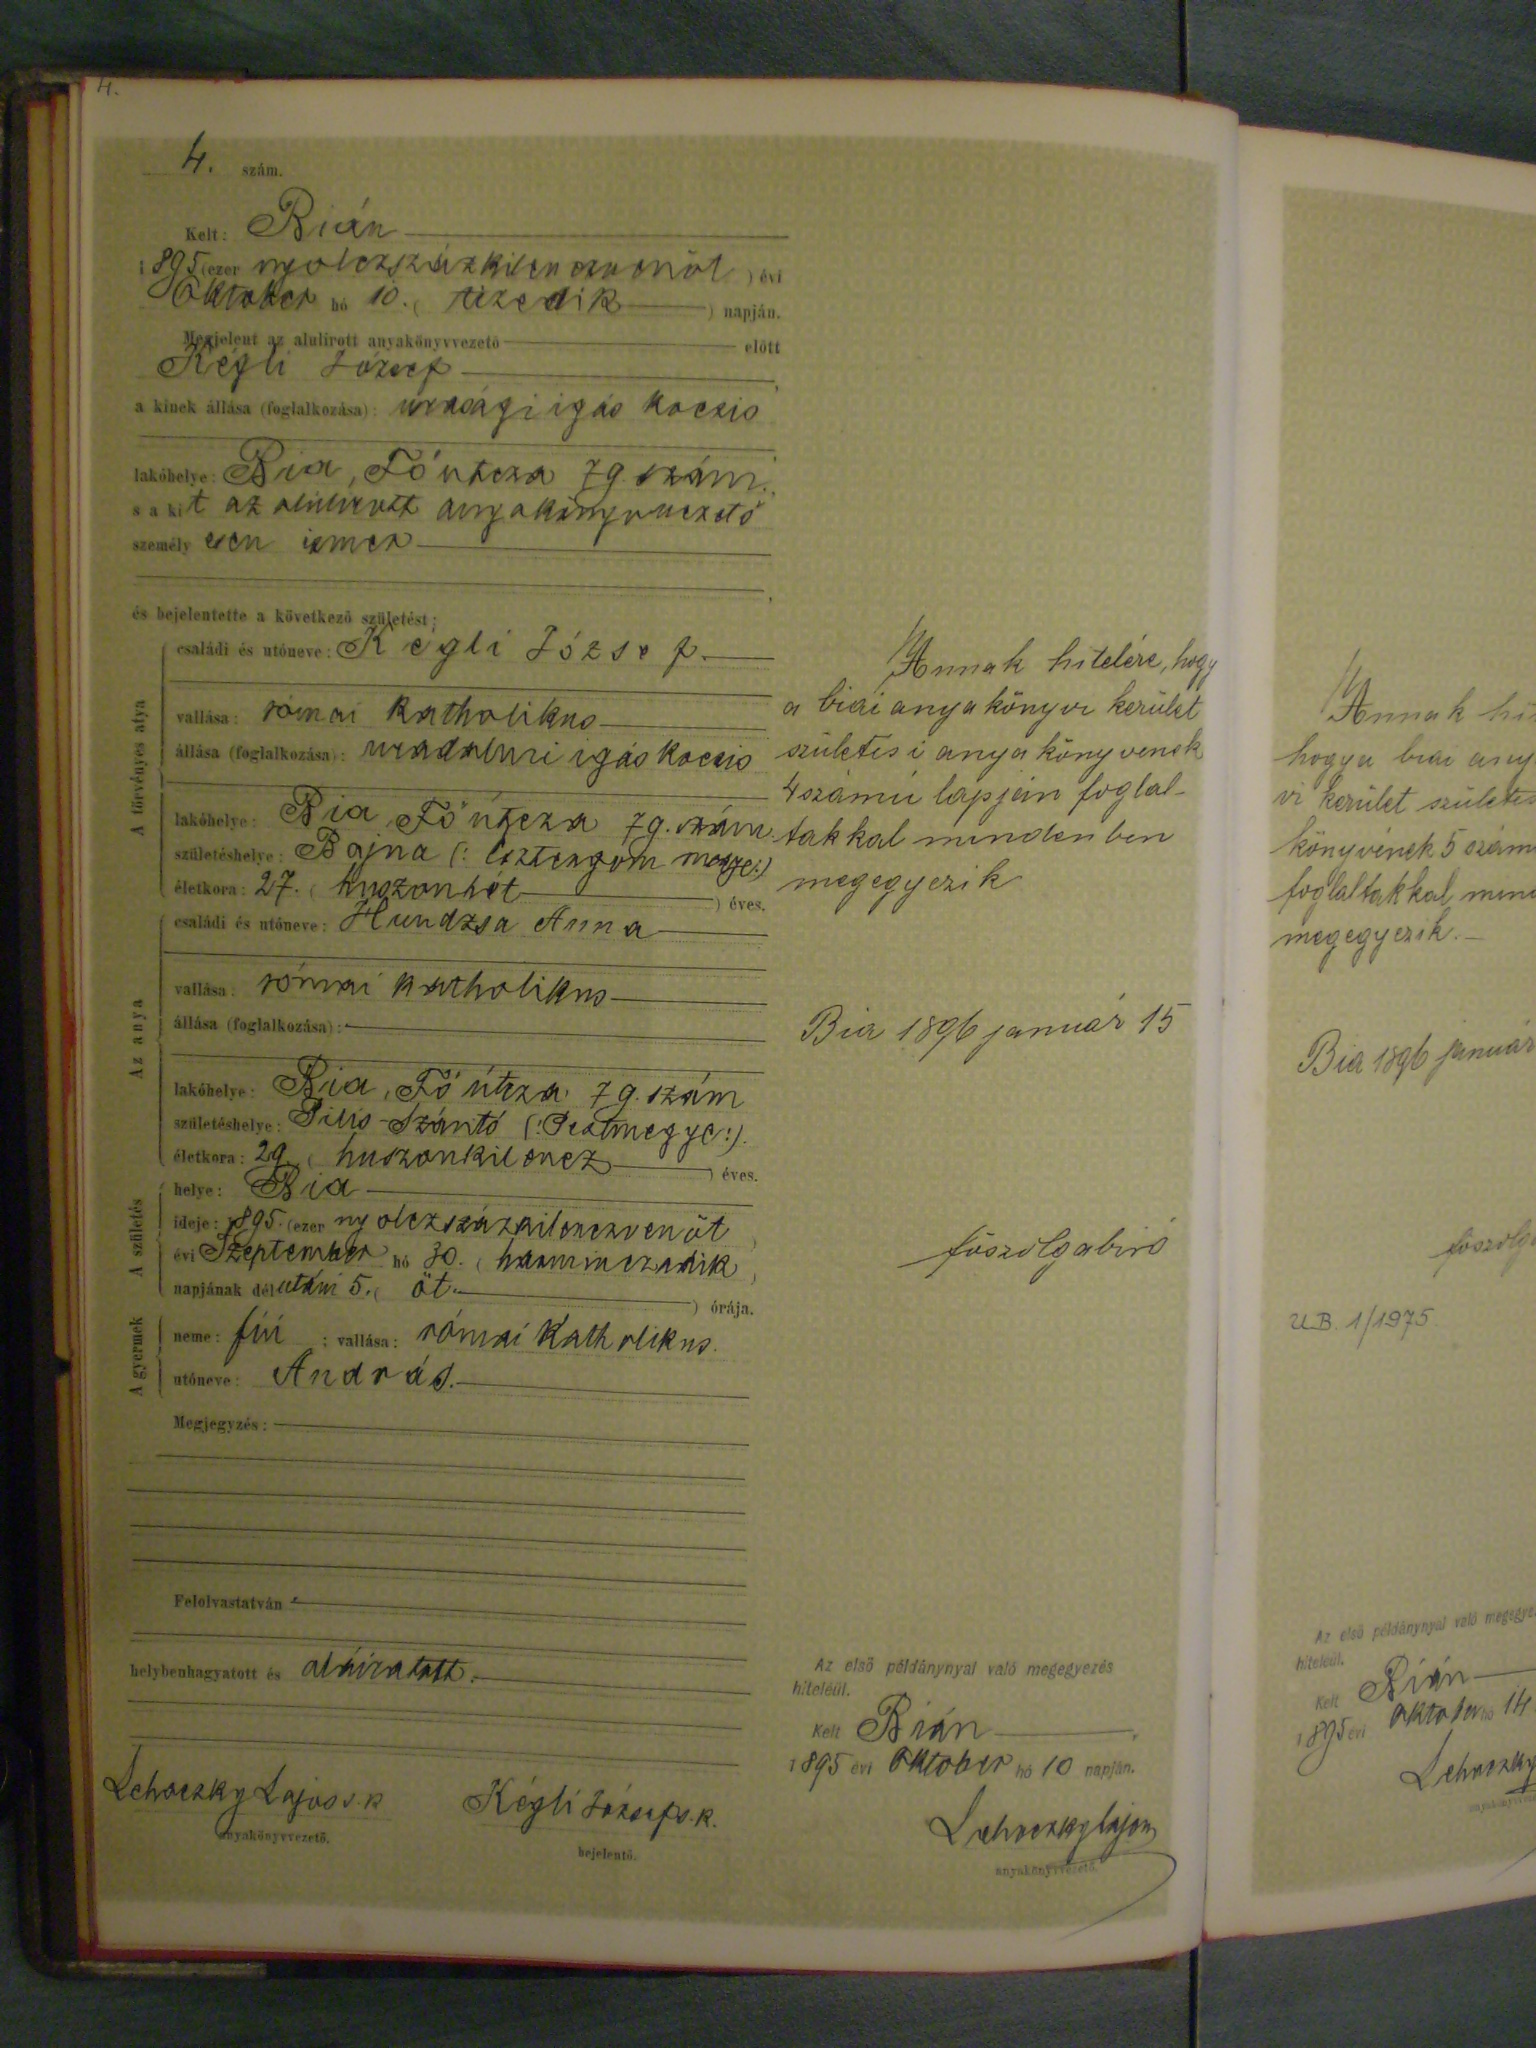 4.
4. szám.
Kelt: Bián
1895 (ezer nyolczszázkilenczvenöt ) évi
Október hó 10. ( tizedik ) napján.
Megjelent az alulírott anyakönyvvezető előtt
Kégli József ,
a kinek állása (foglalkozása): urasági igás kocsis
lakóhelye: Bia, Fő útcza 79. szám.,
s a kit az alulirott anyakönyvvezető
személy esen ismer
,
és bejelentette a következő születést:
A törvényes atya
családi és utóneve: Kégli József.
vallása: római katholikus
állása (foglalkozása): uradalmi igás kocsis
lakóhelye: Bia, Fő útcza 79. szám
születéshelye: Bajna (: Esztergom megye:)
életkora: 27. ( huszonhét ) éves.
Az anya
családi és utóneve: Hundzsa Anna
vallása: római katholikus
állása (foglalkozása):
lakóhelye: Bia, Fő útcza 79. szám
születéshelye: Pilis-Szántó (: Pestmegye:).
életkora: 29. ( huszonkilencz ) éves.
A születés
helye: Bia
ideje: 1895. (ezer nyolczszázkilenczvenöt )
évi Szeptember hó 30. ( harminczadik )
napjának délutáni 5. ( öt. ) órája.
A gyermek
neme: fiú ; vallása: római katholikus.
utóneve: András.
Megjegyzés:
Felolvastatván
helybenhagyatott és aláíratott.
Lehoczky Lajos s.k
anyakönyvvezető.
Kégli József s.k.
bejelentő.
Annak hitelére, hogy
a biai anyakönyvi kerület
születési anyakönyvenek
4 számú lapján foglal-
takkal mindenben
megegyezik
Bia 1896 január 15
főszolgabiró
Az első példánynyal való megegyezés
hiteléül.
Kelt Bián ,
1895 évi Október hó 10 napján.
Lehoczky Lajos
anyakönyvvezető.
Annak hit
hogy a biai any
vi kerület születés
könyvének 5 szám
foglaltakkal mind
megegyezik.
Bia 1896 január
főszolg
U.B. 1/1975
Az első példánynyal való megegye
hiteléül.
Kelt Bián
1895 évi Október hó 14
Lehoczky